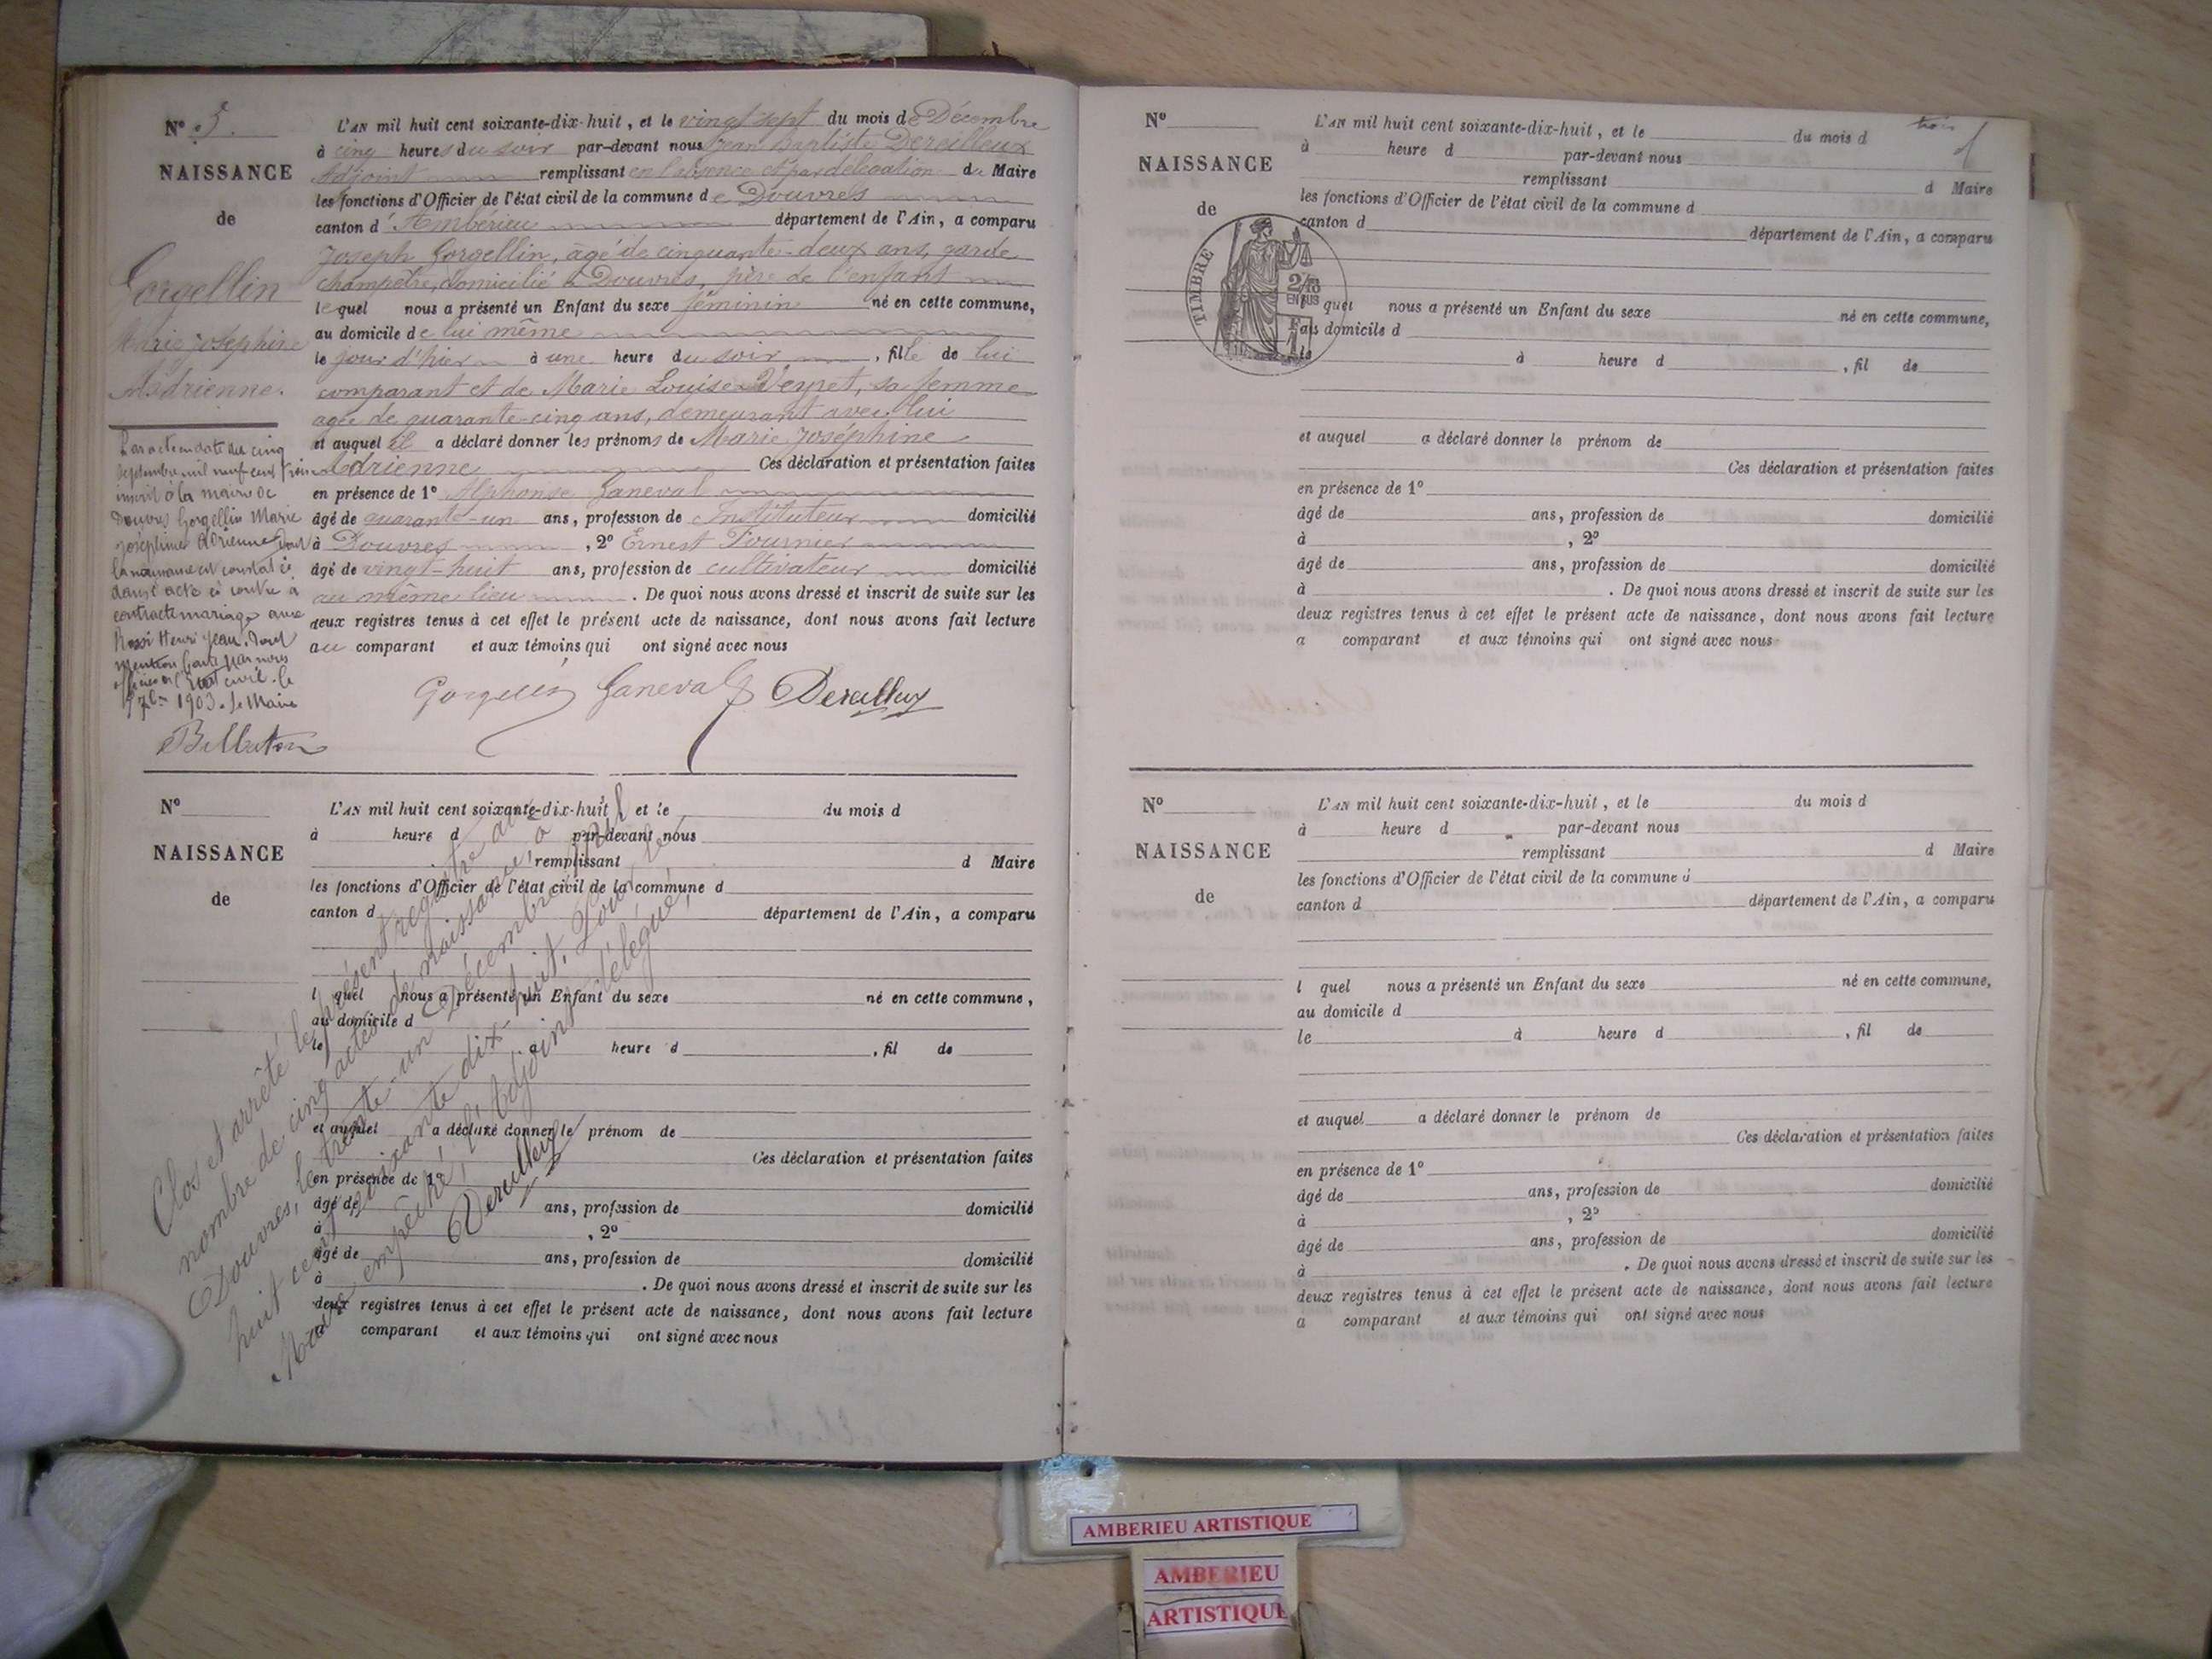 N° 5.
NAISSANCE
de
Gorgellin
Marie Joséphine
Adrienne.
Par acte en date du cinq
septembre mil neuf cent trois
inscrit à la mairie de
Douvres Gorgellin Marie
Joséphine Adrienne dont
la naissance est constatée
dans l'acte ci contre a
contracté mariage avec
Rossi Henri Jean. Dont
mention faite par nous
officier de l'état civil. le
7bre 1903. Le Maire
L'AN mil huit cent soixante-dix-huit, et le vingt sept du mois de Décembre
à cinq heures du soir par-devant nous Jean Baptiste Dereilleux
Adjoint remplissant en l'absence et par délégation du Maire
les fonctions d'Officier de l'état civil de la commune de Douvres
canton d'Ambérieu département de l'Ain, a comparu
Joseph Gorgellin, âgé de cinquante-deux ans, garde
champêtre, domicilié à Douvres, père de l'enfant
lequel nous a présenté un Enfant du sexe féminin né en cette commune,
au domicile de lui même
le jour d'hier à une heure du soir, fille de lui
comparant et de Marie Louise Veyret, sa femme
agée de quarante-cinq ans, demeurant avec lui
et auquel il a déclaré donner les prénoms de Marie Joséphine
Adrienne Ces déclaration et présentation faites
en présence de 1° Alphonse Ganeval
âgé de quarante-un ans, profession de Instituteur domicilié
à Douvres, 2° Ernest Fournier
âgé de vingt-huit ans, profession de cultivateur domicilié
au même lieu. De quoi nous avons dressé et inscrit de suite sur les
deux registres tenus à cet effet le présent acte de naissance, dont nous avons fait lecture
au comparant et aux témoins qui ont signé avec nous
Gorgellin Ganeval Dereilleux
N°
NAISSANCE
de
L'AN mil huit cent soixante-dix-huit, et le du mois d
à heure d par-devant nous
remplissant d Maire
les fonctions d'Officier de l'état civil de la commune d
canton d département de l'Ain, a comparu
l quel nous a présenté un Enfant du sexe né en cette commune,
au domicile d
le à heure d , fil de
et auquel a déclaré donner le prénom de
Ces déclaration et présentation faites
en présence de 1°
âgé de ans, profession de domicilié
à , 2°
âgé de ans, profession de domicilié
à . De quoi nous avons dressé et inscrit de suite sur les
deux registres tenus à cet effet le présent acte de naissance, dont nous avons fait lecture
a comparant et aux témoins qui ont signé avec nous
Clos et arrêté le présent registre au
nombre de cinq actes de naissance, à
Douvres, le trente-un Décembre mil
huit cent soixante dix huit. Pour le
Maire empêché, l'Adjoint délégué,
Dereilleux
N°
NAISSANCE
de
trois
L'AN mil huit cent soixante-dix-huit, et le du mois d
à heure d par-devant nous
remplissant d Maire
les fonctions d'Officier de l'état civil de la commune d
canton d département de l'Ain, a comparu
TIMBRE
2/10
EN SUS
l quel nous a présenté un Enfant du sexe né en cette commune,
au domicile d
le à heure d , fil de
et auquel a déclaré donner le prénom de
Ces déclaration et présentation faites
en présence de 1°
âgé de ans, profession de domicilié
à , 2°
âgé de ans, profession de domicilié
à . De quoi nous avons dressé et inscrit de suite sur les
deux registres tenus à cet effet le présent acte de naissance, dont nous avons fait lecture
a comparant et aux témoins qui ont signé avec nous
N°
NAISSANCE
de
L'AN mil huit cent soixante-dix-huit, et le du mois d
à heure d par-devant nous
remplissant d Maire
les fonctions d'Officier de l'état civil de la commune d
canton d département de l'Ain, a comparu
l quel nous a présenté un Enfant du sexe né en cette commune,
au domicile d
le à heure d , fil de
et auquel a déclaré donner le prénom de
Ces déclaration et présentation faites
en présence de 1°
âgé de ans, profession de domicilié
à , 2°
âgé de ans, profession de domicilié
à . De quoi nous avons dressé et inscrit de suite sur les
deux registres tenus à cet effet le présent acte de naissance, dont nous avons fait lecture
a comparant et aux témoins qui ont signé avec nous
AMBERIEU ARTISTIQUE
AMBERIEU
ARTISTIQUE